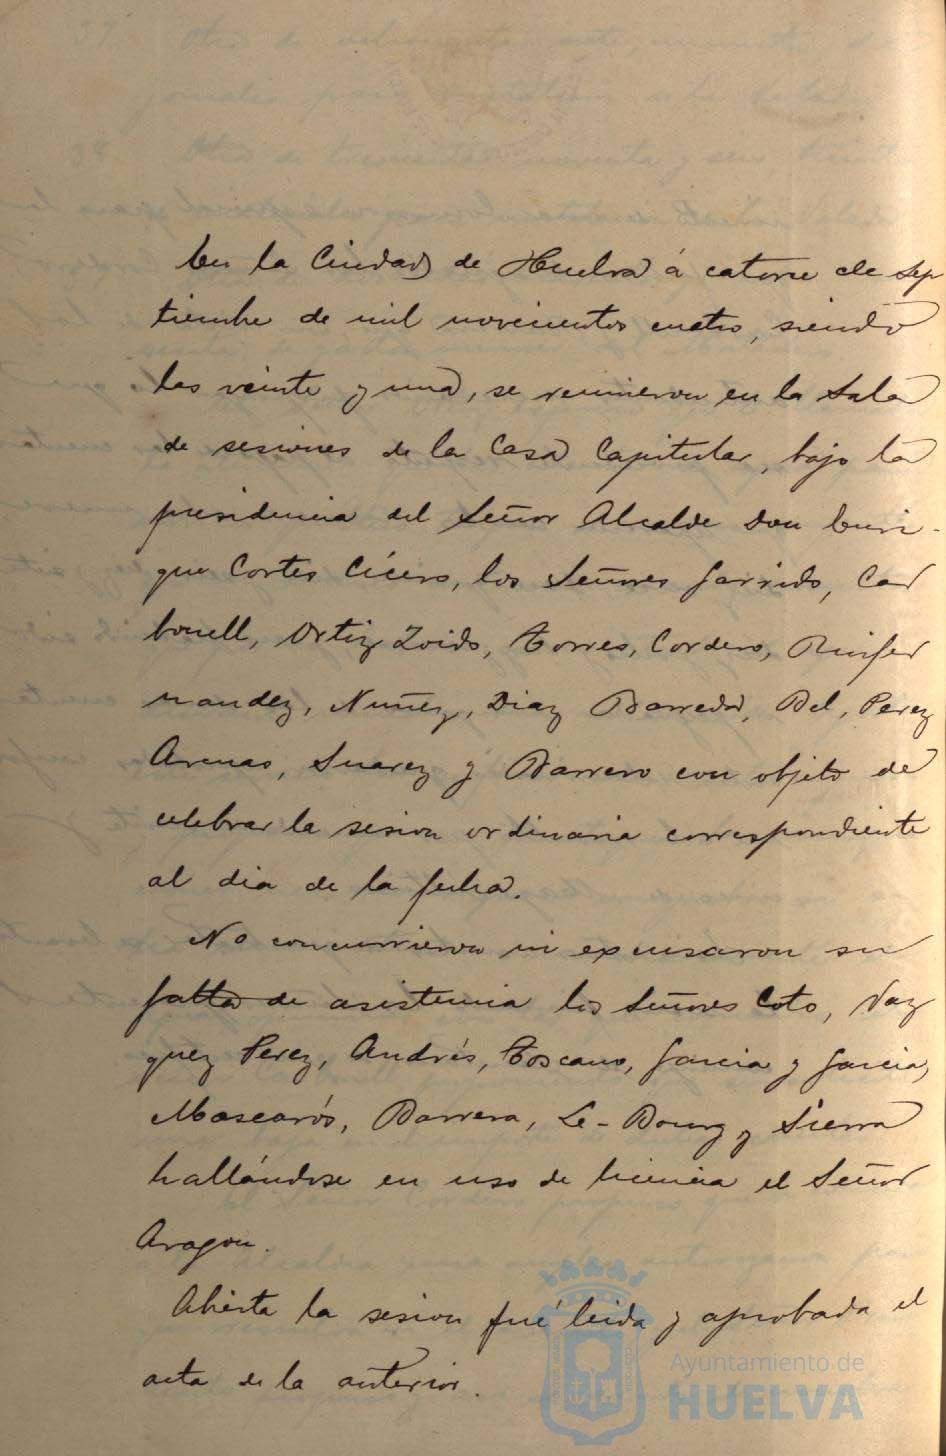 En la Ciudad de Huelva á catorce de Sep
tiembre de mil novecientos cuatro, siendo
las veinte y una, se reunieron en la Sala
de sesiones de la Casa Capitular, bajo la
presidencia del Señor Alcalde Don Enri-
que Cortes Cícero, los Señores Garrido, Car
bonell, Ortiz Zoido, Torres, Cordero, Ruifer
nandez, Nuñez, Diaz Barreda, Bel, Perez
Arenas, Suarez y Barrero con objeto de
celebrar la sesion ordinaria correspondiente
al dia de la fecha.
No concurrieron ni excusaron su
falta de asistencia los Señores Coto, Vaz
quez Perez, Andrés, Toscano, Garcia y Garcia,
Mascarós, Barrera, Le-Bourg y Sierra
hallándose en uso de licencia el Señor
Aragon.
Abierta la sesion fué leida y aprobada el
acta de la anterior.
Ayuntamiento de
HUELVA